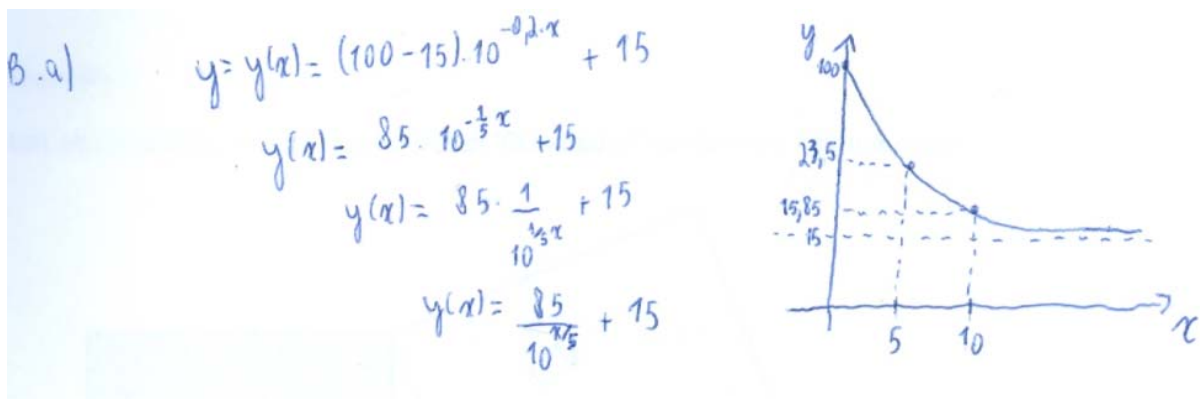 B.a)
y = y(x) = (100 - 15) . 10^{-0,2·x} + 15
y(x) = 85 . 10^{-\frac{1}{5}x} + 15
y(x) = 85 . \frac{1}{10^{1/5 x}} + 15
y(x) = \frac{85}{10^{x/5}} + 15
y
100
23,5
15,85
15
5 10
x